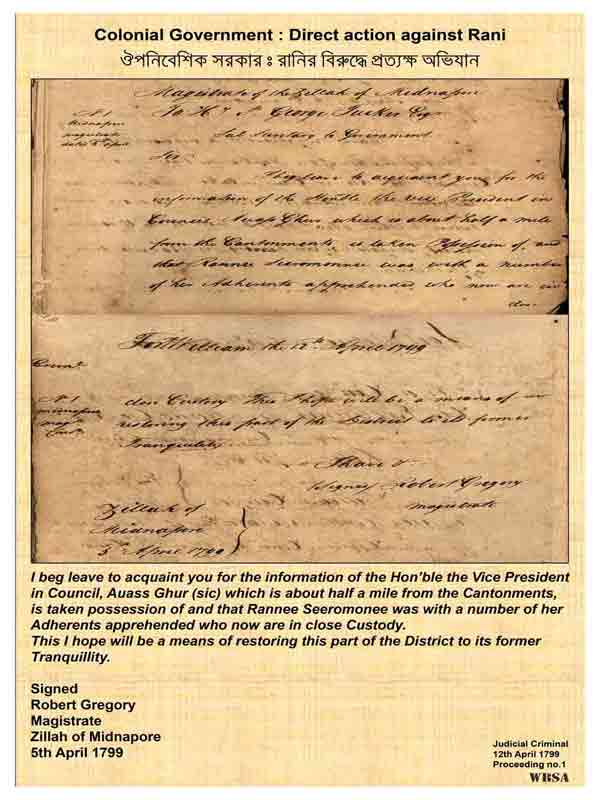 Colonial Government : Direct action against Rani
ঔপনিবেশিক সরকার ঃ রানির বিরুদ্ধে প্রত্যক্ষ অভিযান
Magistrate of the Zillah of Midnapore
To H. St George Tucker Esqr
No 1
Midnapore
magistrate
Secretary to Government
Sir
I beg leave to acquaint you for the
information of the Honble the Vice President in
Council, Auass Ghur which is about half a mile
from the Cantonments, is taken possession of, and
that Rannee Seeromonee was with a number
of her Adherents apprehended who now are in
Fort William the 12th April 1799
No 1
midnapore
close Custody This I hope will be a means of
restoring this part of the District to its former
Tranquillity
I have &
Signed Robert Gregory
magistrate
Zillah of
Midnapore
5th April 1799
I beg leave to acquaint you for the information of the Hon'ble the Vice President
in Council, Auass Ghur (sic) which is about half a mile from the Cantonments,
is taken possession of and that Rannee Seeromonee was with a number of her
Adherents apprehended who now are in close Custody.
This I hope will be a means of restoring this part of the District to its former
Tranquillity.
Signed
Robert Gregory
Magistrate
Zillah of Midnapore
5th April 1799
Judicial Criminal
12th April 1799
Proceeding no.1
WBSA